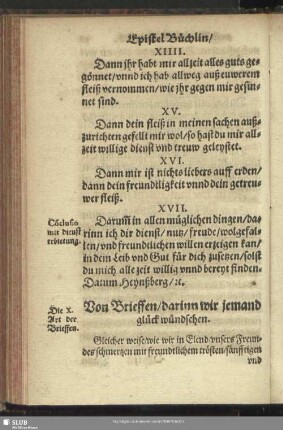 Epistel Büchlin/
XIIII.
Dann jhr habt mir allzeit alles guts ge-
gönnet/vnnd ich hab allweg auß euwerem
fleiß vernommen/wie jhr gegen mir gesin-
net sind.
XV.
Dann dein fleiß in meinen sachen auß-
zurichten gefellt mir wol/so hast du mir all-
zeit willige dienst vnd treuw geleystet.
XVI.
Dann mir ist nichts liebers auff erden/
dann dein freundligkeit vnnd dein getreu-
wer fleiß.
XVII.
Darum̃ in allen müglichen dingen/da-
rinn ich dir dienst/nutz/freude/wolgefal-
len/vnd freundtlichen willen erzeigen kan/
in dem Leib vnd Gut für dich zusetzen/solst
du mich alle zeit willig vnnd bereyt finden.
Datum Heynßberg/ꝛc.
Cõclusio
mit dienst
erbietung.
Die X.
Art der
Brieffen.
Von Brieffen/darinn wir jemand
glück wündschen.
Gleicher weise/wie wir in Elend vnsers Freun-
des schmertzen mit freundtlichem trösten/sänfftigen
vnd
SLUB